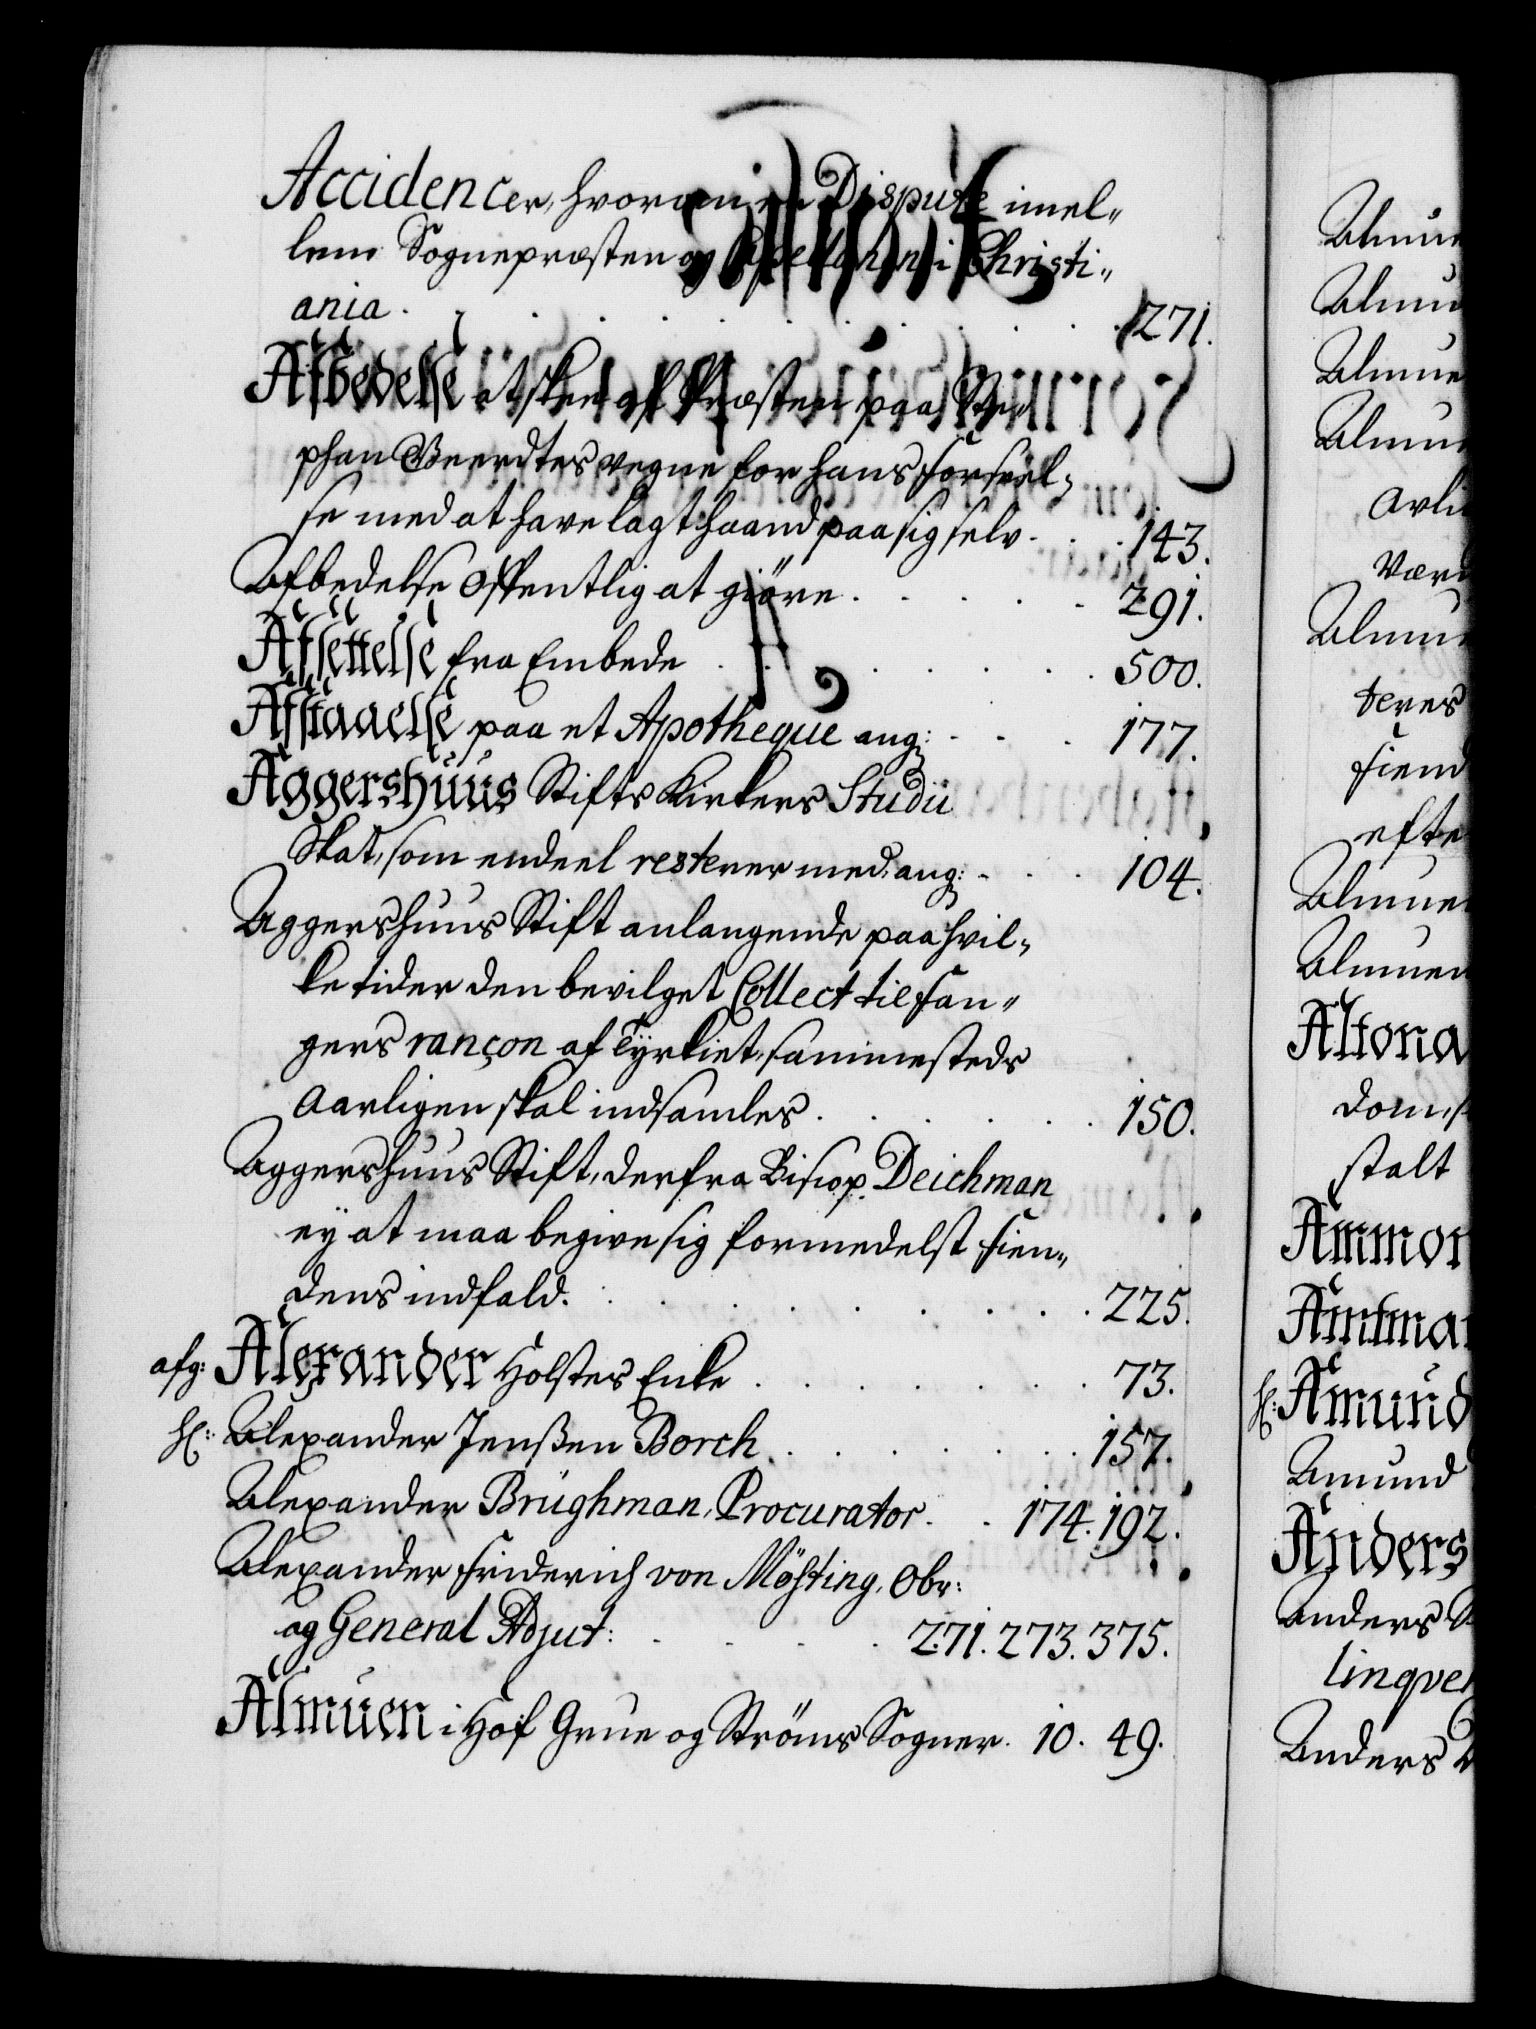 Accidencer, hvorom en Dispute imel„
lem Sognepræsten og Capellanen i Christi„
ania . . . . . . . . . . 271.
Afbedelse at skee af Præsten paa Ste„
phan Beerdtes vegne for hans forseel„
se med at have lagt haand paa sig selv . . . 143.
Afbedelse offentlig at giöre . . . . . 291.
Afsettelse fra Embede . . . . . . 500.
Afstaaelse paa et Apotheque ang: . . . 177.
Aggershuus Stifts Kirkers Studii
Skat, som endeel resterer med, ang: . . . 104.
Aggershuus Stift anlangende paa hvil„
ke tider den bevilget Collect til fan„
gers rançon af Tyrkiet, sammesteds
Aarligen skal indsamles . . . . . 150.
Aggershuus Stift, derfra Biscop Deichman
ey at maa begive sig formedelst fien„
dens indfald. . . . . . . . 225.
afg: Alexander Holstes Enke . . . . . . 73.
Sl: Alexander Jenßen Borch . . . . . . 157.
Alexander Brüghman, Procurator . . 174. 192.
Alexander Friderich von Møsting, Obr:
og General Adjut: . . . . 271. 273. 375.
Almuen i Hof Grue og Ströms Sogner. 10. 49.
Almue
Almu
Almue
Almu
Avli
Almu
deres
fiend
efte
Almue
Almuen
Altona
dom, s
stalt
Ammon
Amtma
Sl: Amund
Amund
Anders
Anders
linqve
Anders